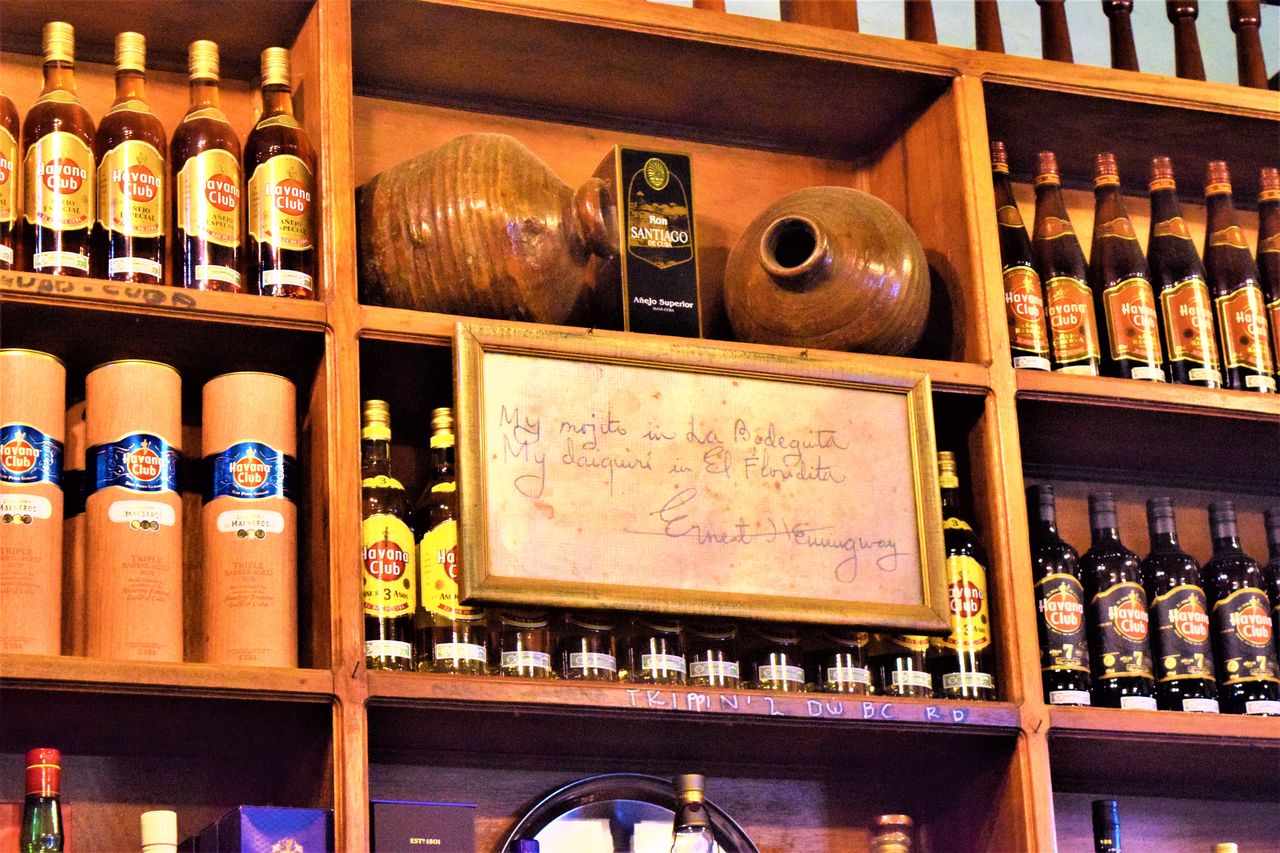 Havana Club
AÑEJO ESPECIAL
Havana Club
AÑEJO ESPECIAL
Havana Club
AÑEJO ESPECIAL
Havana Club
AÑEJO ESPECIAL
Ron
SANTIAGO
DE CUBA
Añejo Superior
Havana Club
Havana Club
Havana Club
Havana Club
Havana Club
RESERVA
CUBA
My mojito in La Bodeguita
My daiquirí in El Floridita
Ernest Hemingway
Havana Club
MAESTROS
TRIPLE
Havana Club
MAESTROS
TRIPLE
BARREL AGED
Havana Club
MAESTROS
TRIPLE
BARREL AGED
Havana Club
3 AÑOS
Havana Club
Havana Club
3 AÑOS
Havana Club
7
Havana Club
7
Havana Club
7
Havana Club
7
TRIPPIN' 2 DW BC RD
EST? 1801